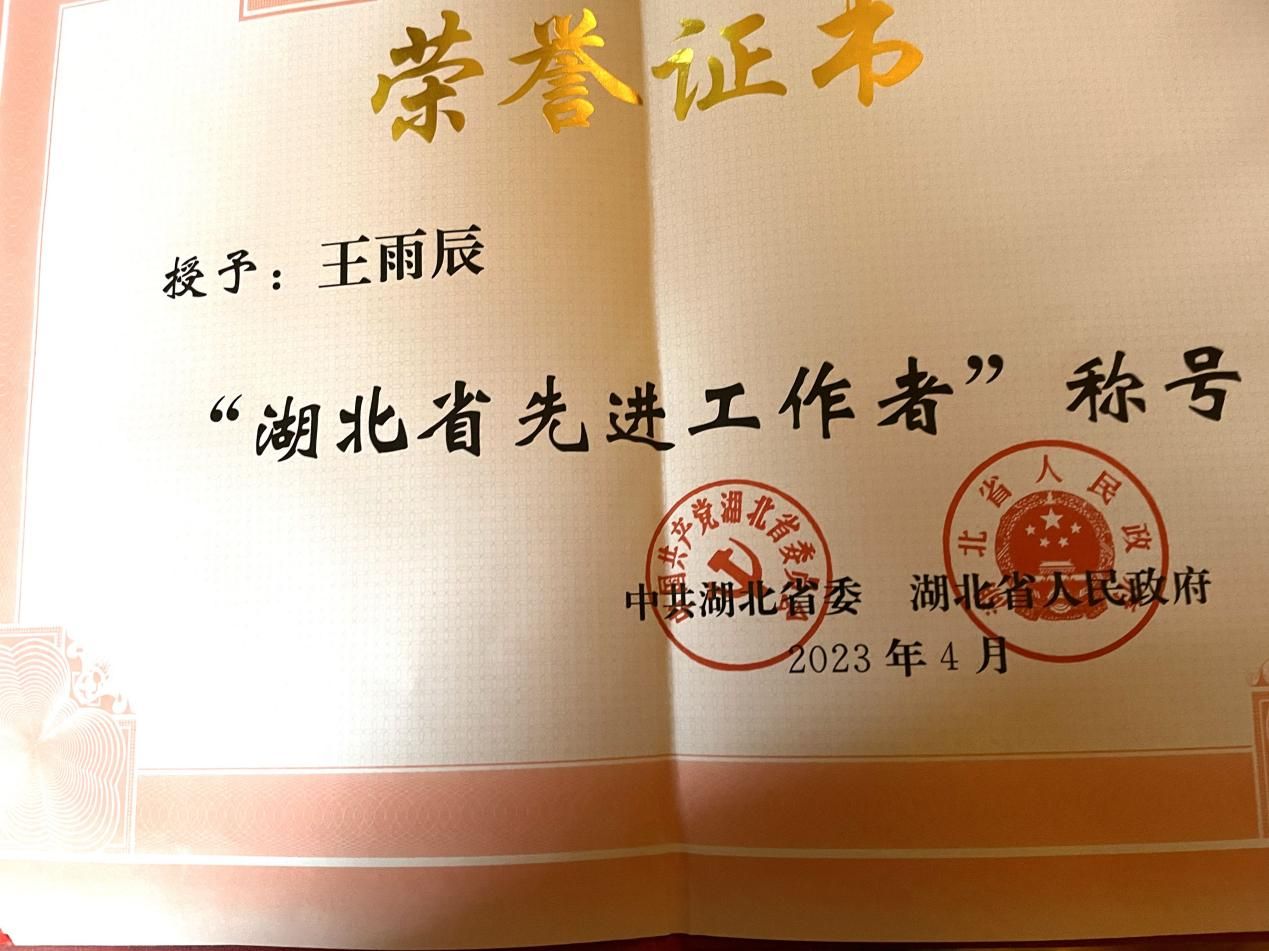 荣誉证书
授予：王雨辰
“湖北省先进工作者”称号
中国共产党湖北省委员会
北省人民政
中共湖北省委 湖北省人民政府
2023年4月